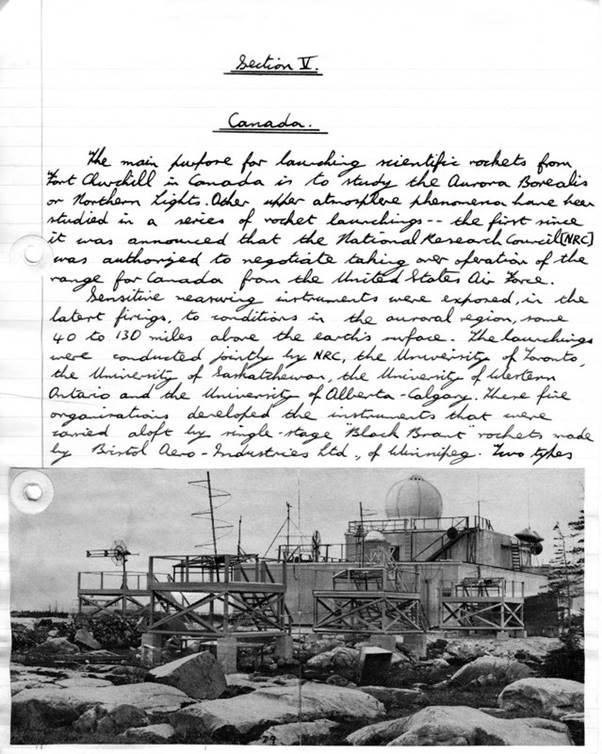 Section V.
Canada.
The main purpose for launching scientific rockets from
Fort Churchill in Canada is to study the Aurora Borealis
or Northern Lights. Other upper atmosphere phenomena have been
studied in a series of rocket launchings -- the first since
it was announced that the National Research Council [NRC]
was authorized to negotiate taking over operation of the
range for Canada from the United States Air Force.
Sensitive measuring instruments were exposed, in the
latest firings, to conditions in the auroral region, some
40 to 130 miles above the earth's surface. The launchings
were conducted jointly by NRC, the University of Toronto,
the University of Saskatchewan, the University of Western
Ontario and the University of Alberta-Calgary. These five
organisations developed the instruments that were
carried aloft by single-stage "Black Brant" rockets made
by Bristol Aero-Industries Ltd., of Winnipeg. Two types